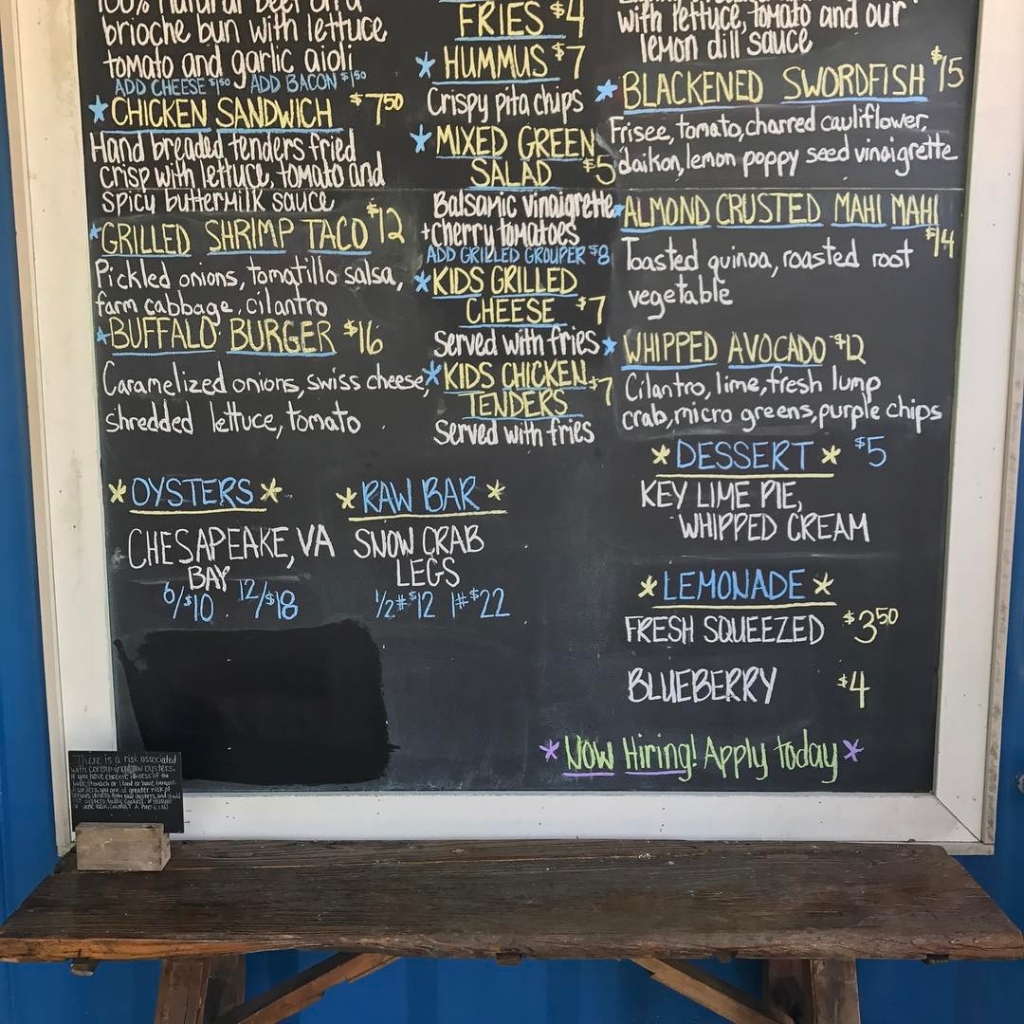 100% natural beef on a
brioche bun with lettuce
tomato and garlic aioli
ADD CHEESE $1.50 ADD BACON $1.50
CHICKEN SANDWICH $7.50
Hand breaded tenders fried
crisp with lettuce, tomato and
spicy buttermilk sauce
GRILLED SHRIMP TACO $12
Pickled onions, tomatillo salsa,
farm cabbage, cilantro
BUFFALO BURGER $16
Caramelized onions, swiss cheese,
shredded lettuce, tomato
FRIES $4
HUMMUS $7
Crispy pita chips
MIXED GREEN
SALAD $5
Balsamic vinaigrette
+cherry tomatoes
ADD GRILLED GROUPER $8
KIDS GRILLED
CHEESE $7
Served with fries
KIDS CHICKEN
TENDERS $7
Served with fries
with lettuce, tomato and our
lemon dill sauce
BLACKENED SWORDFISH $15
Frisee, tomato, charred cauliflower,
daikon, lemon poppy seed vinaigrette
ALMOND CRUSTED MAHI MAHI
$14
Toasted quinoa, roasted root
vegetable
WHIPPED AVOCADO $12
Cilantro, lime, fresh lump
crab, micro greens, purple chips
DESSERT $5
KEY LIME PIE,
WHIPPED CREAM
OYSTERS
CHESAPEAKE, VA
BAY
6/$10 12/$18
RAW BAR
SNOW CRAB
LEGS
1/2# $12 1# $22
LEMONADE
FRESH SQUEEZED $3.50
BLUEBERRY $4
Now Hiring! Apply today
There is a risk associated
with consuming raw oysters.